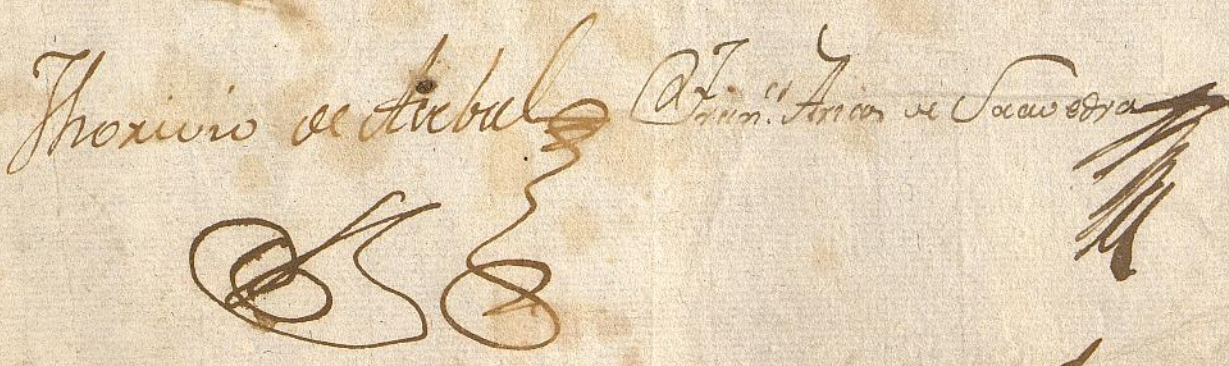 Thorivio de Airbal Fran.co Arias de Saavedra